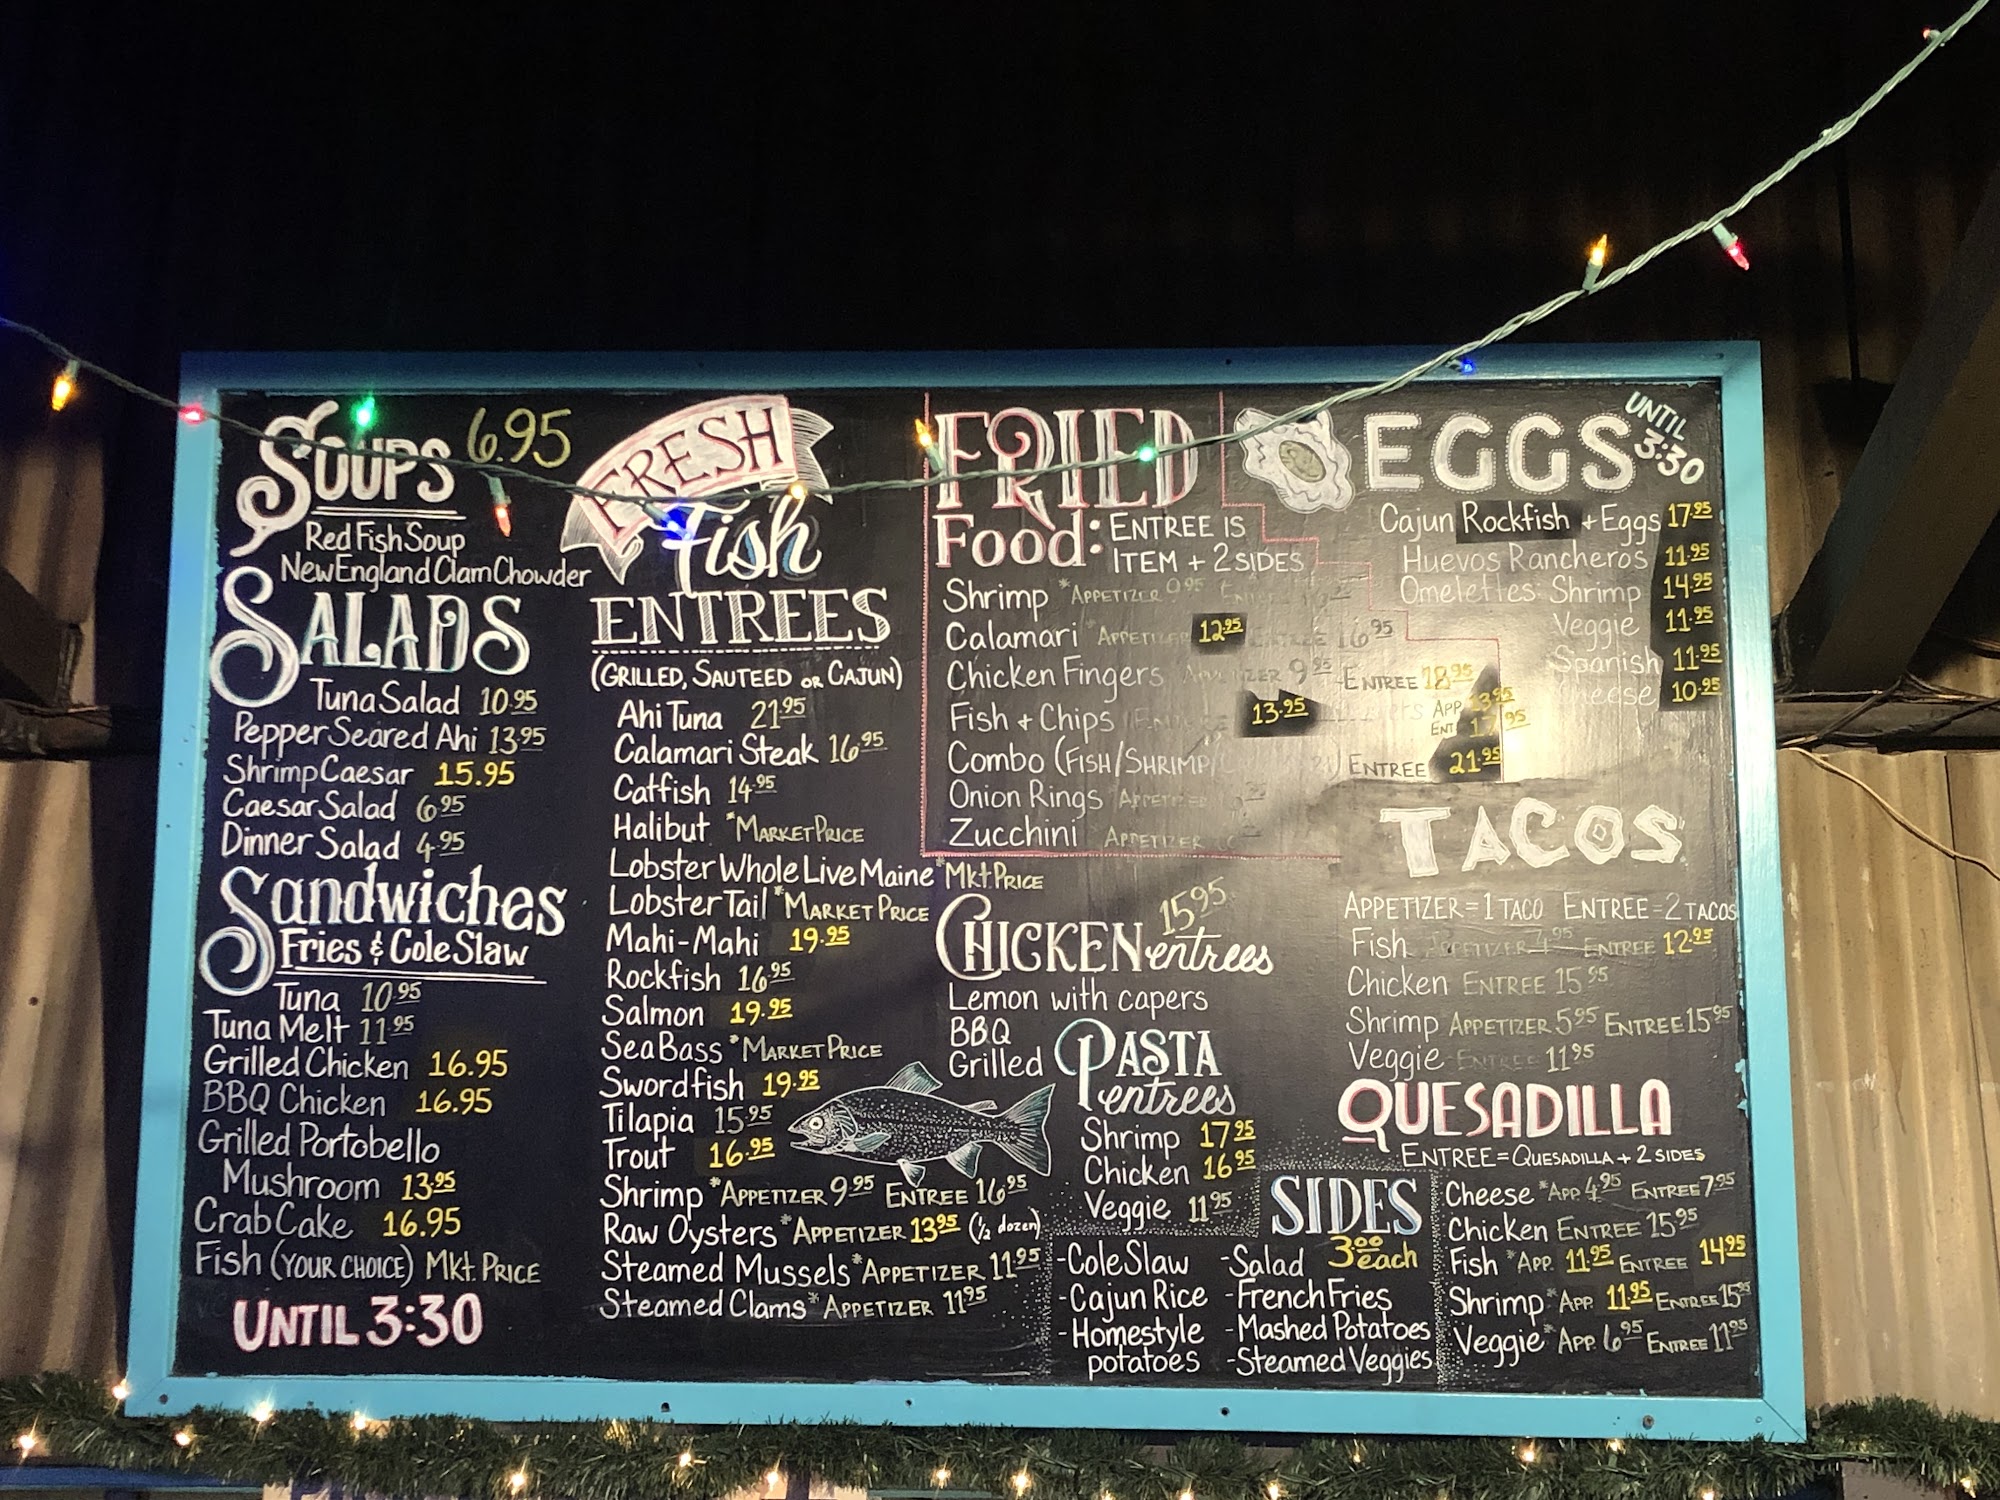 SOUPS 6.95
Red Fish Soup
New England Clam Chowder
SALADS
Tuna Salad 10.95
Pepper Seared Ahi 13.95
Shrimp Caesar 15.95
Caesar Salad 6.95
Dinner Salad 4.95
Sandwiches
Fries & Cole Slaw
Tuna 10.95
Tuna Melt 11.95
Grilled Chicken 16.95
BBQ Chicken 16.95
Grilled Portobello
Mushroom 13.95
Crab Cake 16.95
Fish (YOUR CHOICE) Mkt. PRICE
UNTIL 3:30
FRESH
Fish
ENTREES
(GRILLED, SAUTEED OR CAJUN)
Ahi Tuna 21.95
Calamari Steak 16.95
Catfish 14.95
Halibut *MARKET PRICE
Lobster Whole Live Maine *Mkt. PRICE
Lobster Tail *MARKET PRICE
Mahi-Mahi 19.95
Rockfish 16.95
Salmon 19.95
Sea Bass *MARKET PRICE
Swordfish 19.95
Tilapia 15.95
Trout 16.95
Shrimp *APPETIZER 9.95 ENTREE 16.95
Raw Oysters *APPETIZER 13.95 (1/2 dozen)
Steamed Mussels *APPETIZER 11.95
Steamed Clams *APPETIZER 11.95
FRIED
Food: ENTREE IS
ITEM + 2 SIDES
Shrimp *APPETIZER 9.95
Calamari *APPETIZER 12.95 16.95
Chicken Fingers 9.95 ENTREE 18.95
Fish + Chips 13.95 APP. 13.95
ENT. 17.95
Combo (FISH/SHRIMP/ ENTREE 21.95
Onion Rings *APPETIZER
Zucchini *APPETIZER
CHICKEN entrees 15.95
Lemon with capers
BBQ
Grilled
PASTA
entrees
Shrimp 17.95
Chicken 16.95
Veggie 11.95
SIDES
3.00 each
-Cole Slaw
-Cajun Rice
-Homestyle
potatoes
-Salad
-French Fries
-Mashed Potatoes
-Steamed Veggies
EGGS UNTIL
3:30
Cajun Rockfish + Eggs 17.95
Huevos Rancheros 11.95
Omelettes: Shrimp 14.95
Veggie 11.95
Spanish 11.95
Cheese 10.95
TACOS
APPETIZER = 1 TACO ENTREE = 2 TACOS
Fish APPETIZER 4.95 ENTREE 12.95
Chicken ENTREE 15.95
Shrimp APPETIZER 5.95 ENTREE 15.95
Veggie ENTREE 11.95
QUESADILLA
ENTREE = QUESADILLA + 2 SIDES
Cheese *APP. 4.95 ENTREE 7.95
Chicken ENTREE 15.95
Fish *APP. 11.95 ENTREE 14.95
Shrimp *APP. 11.95 ENTREE 15.95
Veggie *APP. 6.95 ENTREE 11.95